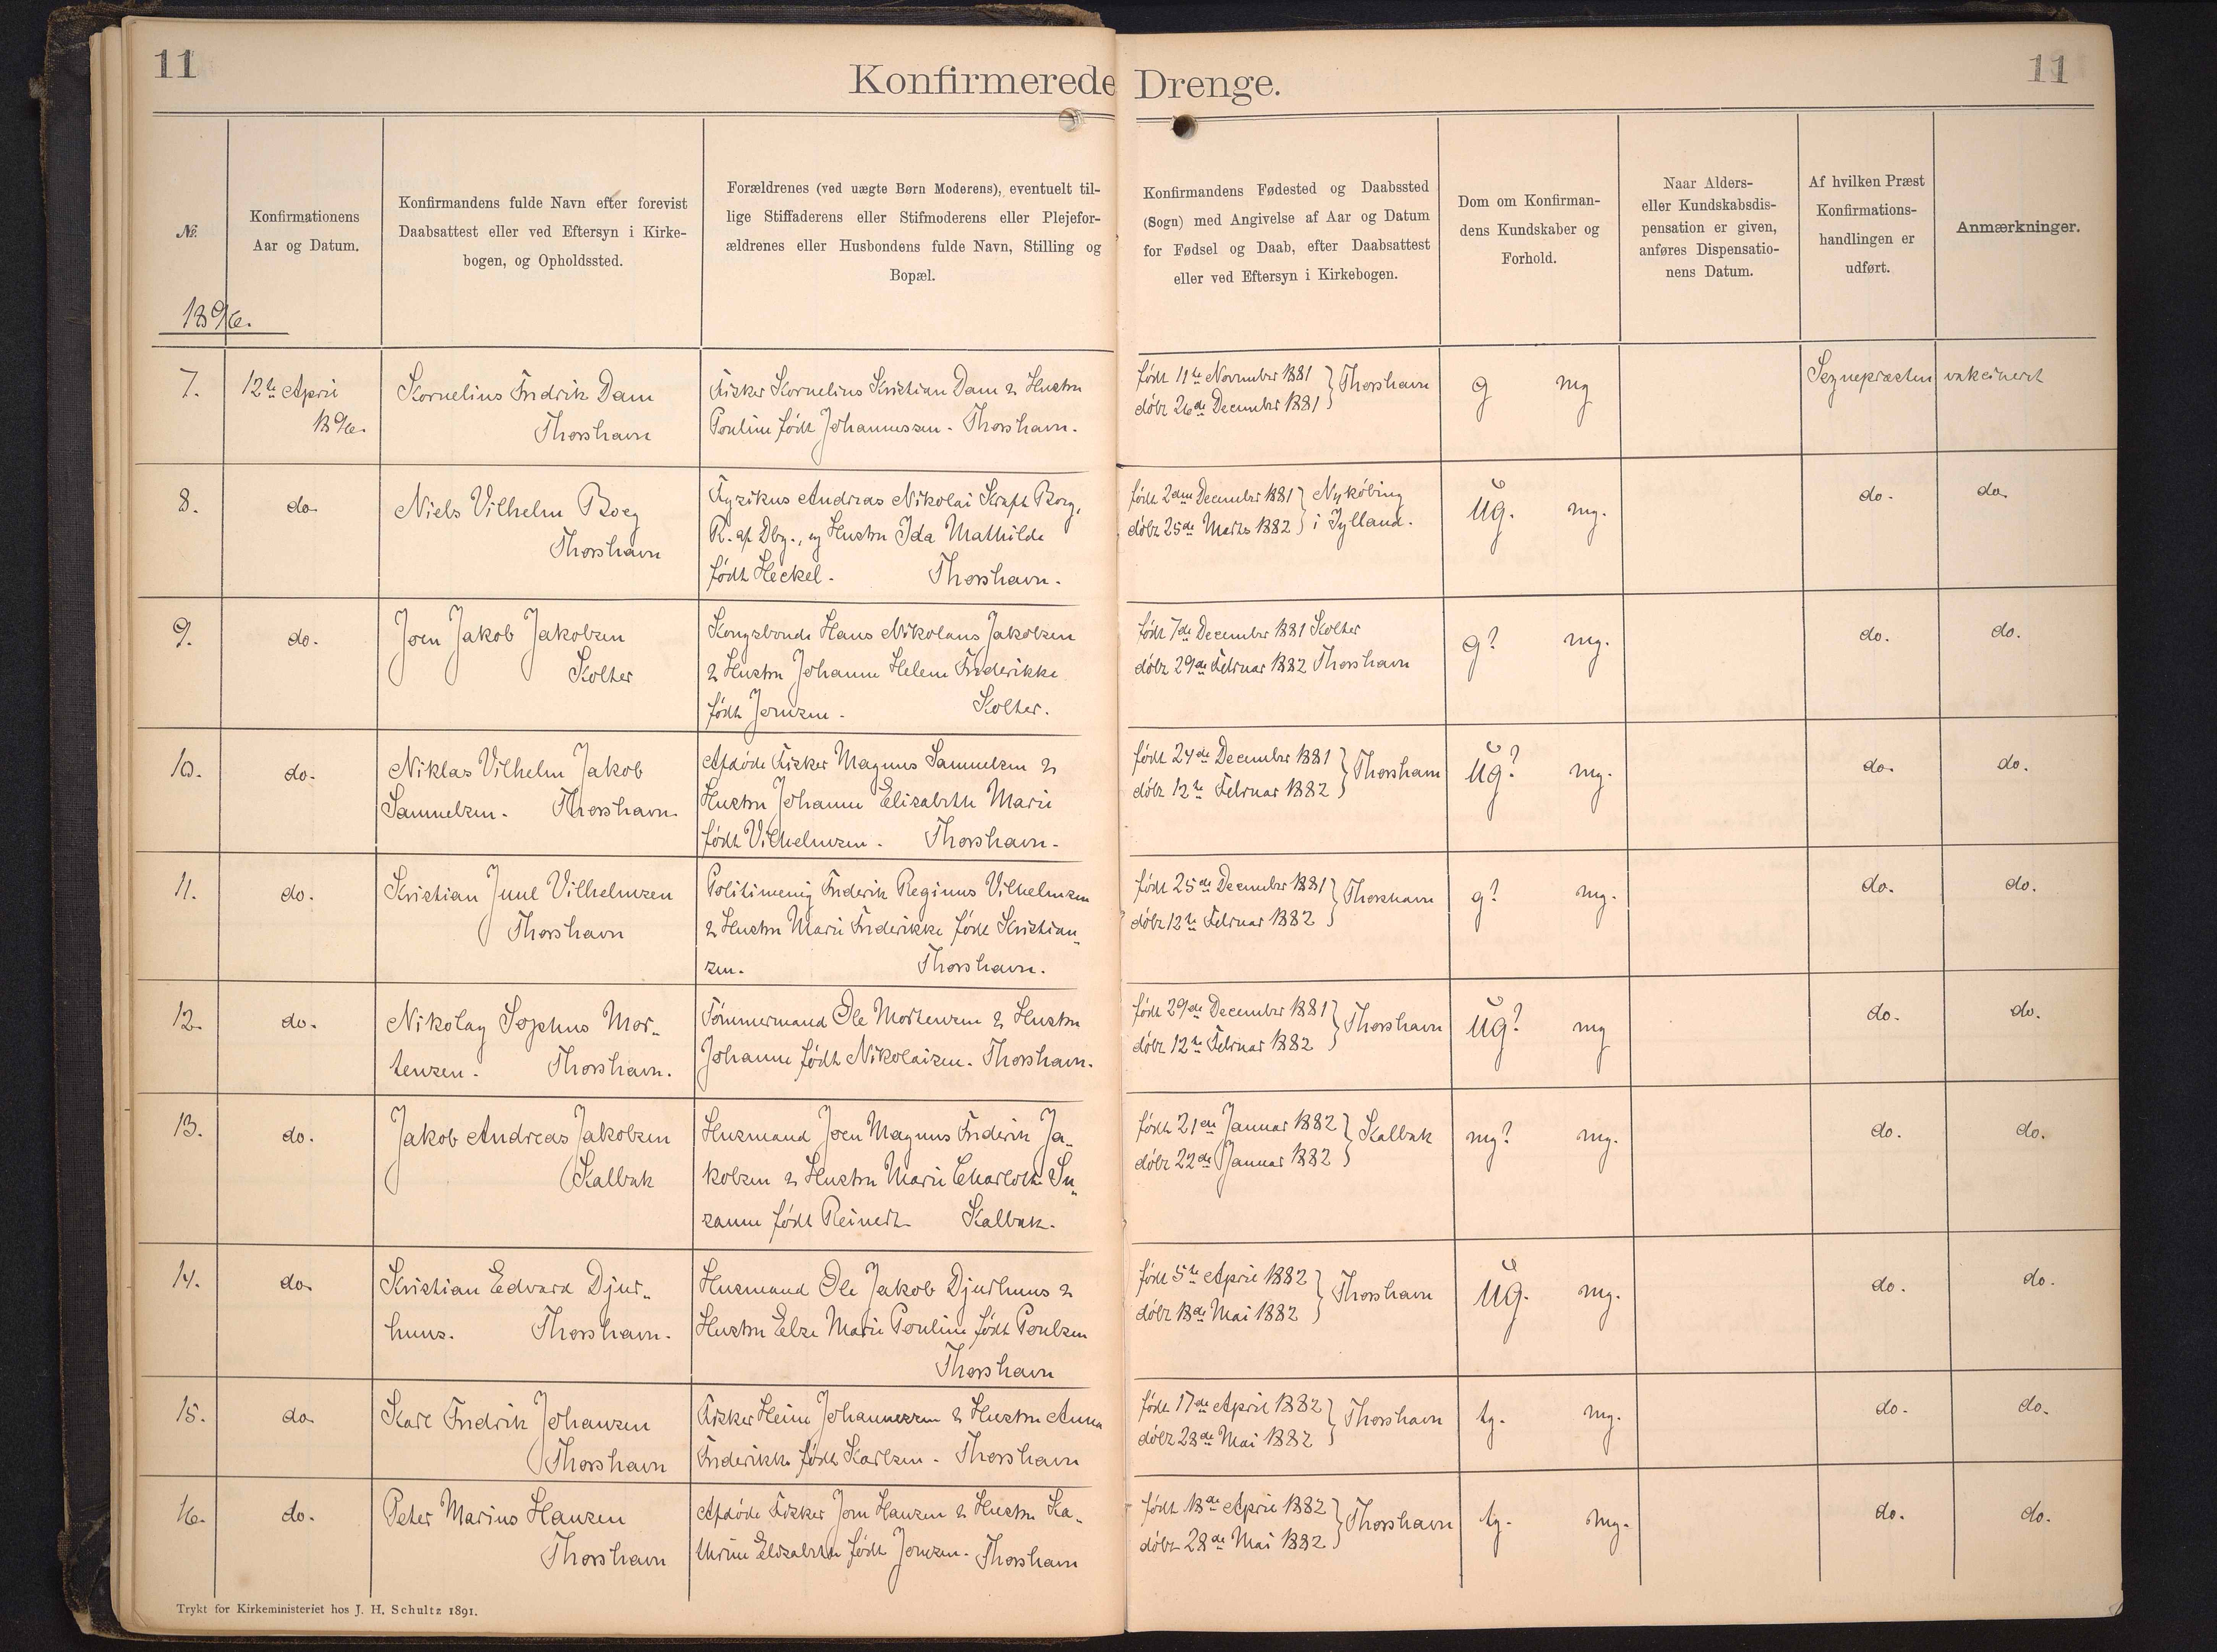 11
Konfirmerede Drenge.
11
№.
Konfirmationens
Aar og Datum.
Konfirmandens fulde Navn efter forevist
Daabsattest eller ved Eftersyn i Kirke-
bogen, og Opholdssted.
Forældrenes (ved uægte Børn Moderens), eventuelt til-
lige Stiffaderens eller Stifmoderens eller Plejefor-
ældrenes eller Husbondens fulde Navn, Stilling og
Bopæl.
Konfirmandens Fødested og Daabssted
(Sogn) med Angivelse af Aar og Datum
for Fødsel og Daab, efter Daabsattest
eller ved Eftersyn i Kirkebogen.
Dom om Konfirman-
dens Kundskaber og
Forhold.
Naar Alders-
eller Kundskabsdis-
pensation er given,
anføres Dispensatio-
nens Datum.
Af hvilken Præst
Konfirmations-
handlingen er
udført.
Anmærkninger.
1896.
7.
12te April
1896.
Kornelius Fredrik Dam
Thorshavn
Fisker Kornelius Kristian Dam & Hustru
Pouline født Johannessen. Thorshavn.
født 11te November 1881
døbt 26de December 1881 } Thorshavn
g mg
Sognepræsten
vakcineret
8.
do.
Niels Vilhelm Boeg
Thorshavn
Fyzikus Andreas Nikolai Kraft Boeg,
R. af Dbg., og Hustru Ida Mathilde
født Heckel. Thorshavn.
født 2den December 1881
døbt 25de Marts 1882 } Nykøbing
i Jylland.
ug. mg.
do.
do.
9.
do.
Joen Jakob Jakobsen
Kolter
Kongsbonde Hans Nikolaus Jakobsen
& Hustru Johanne Helene Frederikke
født Joensen. Kolter.
født 7de December 1881 Kolter
døbt 29de Februar 1882 Thorshavn
g? mg.
do.
do.
10.
do.
Niklas Vilhelm Jakob
Samuelsen. Thorshavn.
Afdøde Fisker Magnus Samuelsen &
Hustru Johanne Elisabeth Marie
født Vilhelmsen. Thorshavn.
født 24de December 1881
døbt 12te Februar 1882 } Thorshavn
ug? mg.
do.
do.
11.
do.
Kristian Juul Vilhelmsen
Thorshavn
Politimenig Frederik Reginus Vilhelmsen
& Hustru Marie Frederikke født Kristian-
sen. Thorshavn.
født 25de December 1881
døbt 12te Februar 1882 } Thorshavn
g? mg.
do.
do.
12.
do.
Nikolay Sophus Mor-
tensen. Thorshavn.
Tømmermand Ole Mortensen & Hustru
Johanne født Nikolaisen. Thorshavn.
født 29de December 1881
døbt 12te Februar 1882 } Thorshavn
ug? mg
do.
do.
13.
do.
Jakob Andreas Jakobsen
Kalbak
Husmand Joen Magnus Frederik Ja-
kobsen & Hustru Marie Charlotte Su-
sanne født Reinert Kalbak.
født 21de Januar 1882
døbt 22de Januar 1882 } Kalbak
mg? mg.
do.
do.
14.
do.
Kristian Edvard Djur-
huus. Thorshavn.
Husmand Ole Jakob Djurhuus &
Hustru Else Marie Pouline født Poulsen
Thorshavn
født 5te April 1882
døbt 18de Mai 1882 } Thorshavn
ug. mg.
do.
do.
15.
do.
Karl Fredrik Johansen
Thorshavn
Fisker Heine Johannessen & Hustru Anna
Frederikke født Karlsen. Thorshavn
født 17de April 1882
døbt 28de Mai 1882 } Thorshavn
tg. mg.
do.
do.
16.
do.
Peter Marius Hansen
Thorshavn
Afdøde Fisker Joen Hansen & Hustru Ka-
thrine Elisabeth født Joensen. Thorshavn
født 18de April 1882
døbt 28de Mai 1882. } Thorshavn
tg. mg.
do.
do.
Trykt for Kirkeministeriet hos J. H. Schultz 1891.